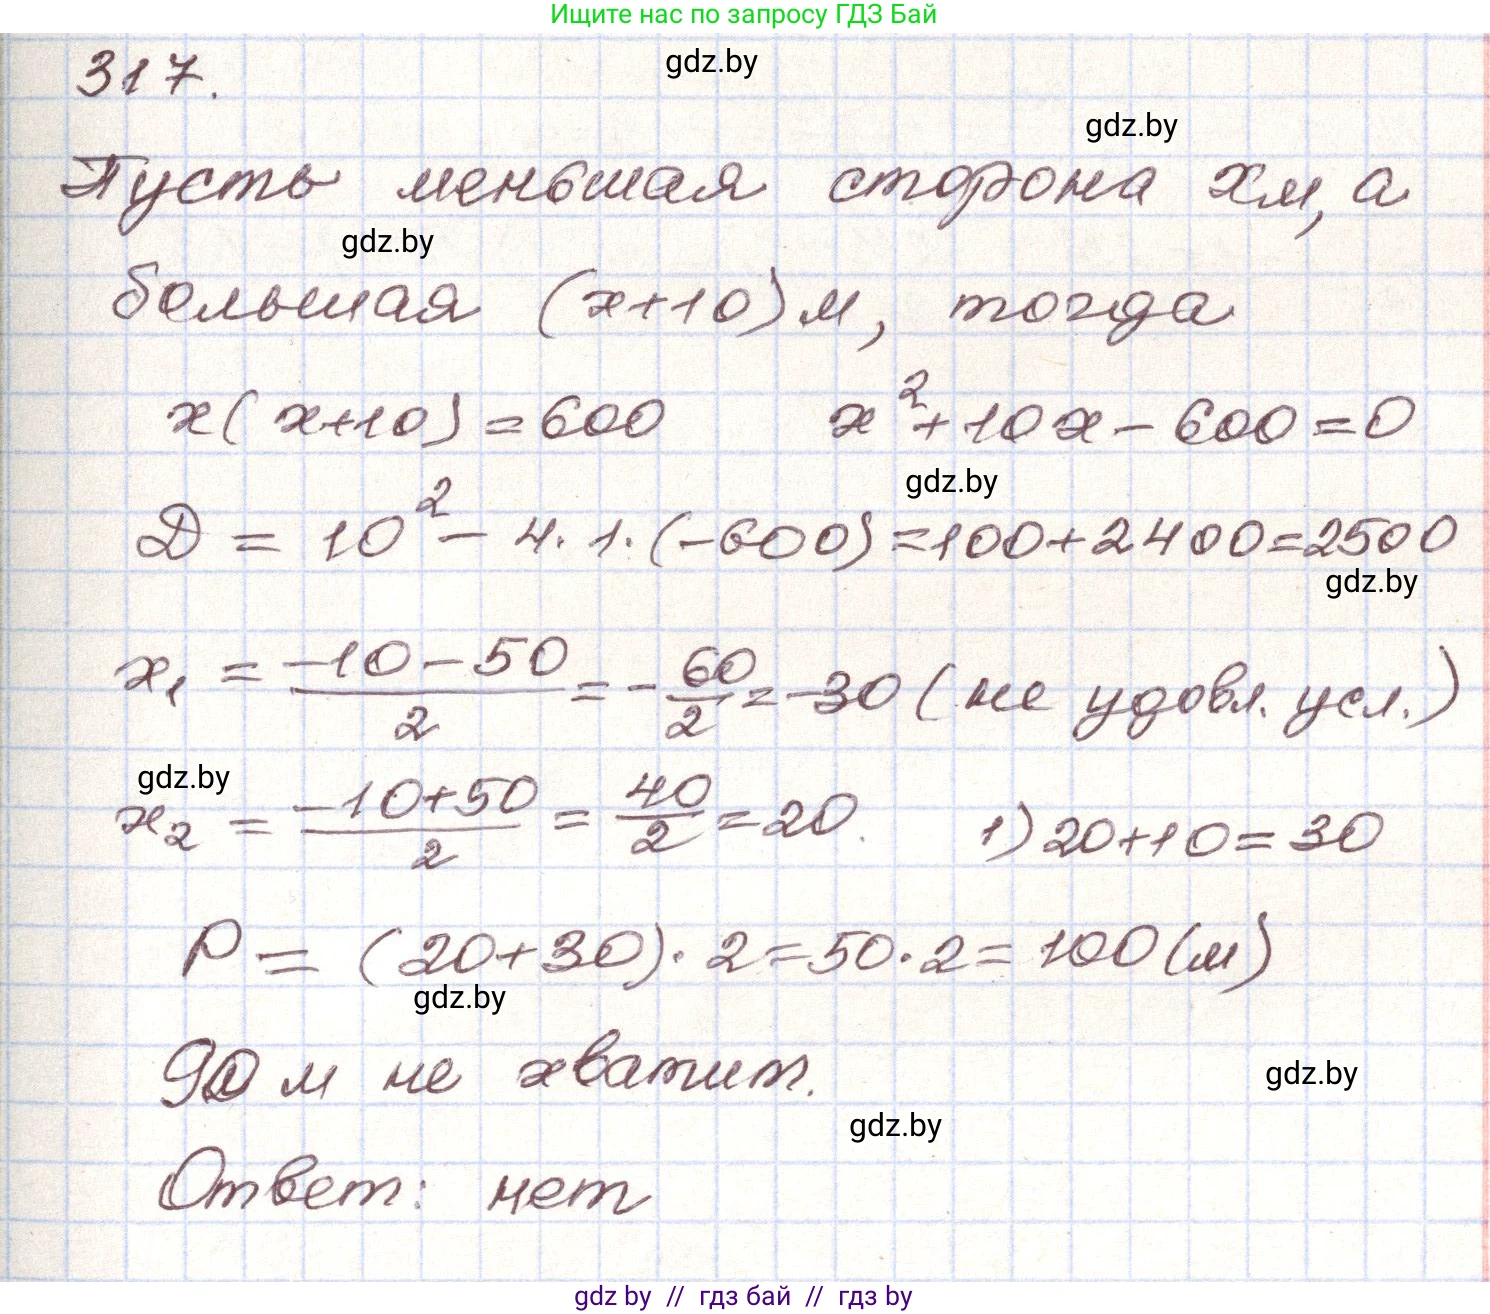 Ищите нас по запросу ГДЗ Бай
317.
gdz.by
gdz.by
Пусть меньшая сторона x м, а
gdz.by
большая (x+10) м, тогда
x(x+10)=600 x²+10x-600=0
gdz.by
D = 10² - 4·1·(-600)=100+2400=2500
gdz.by
x₁ = (-10-50)/2 = -60/2 = -30 (не удовл. усл.)
gdz.by
x₂ = (-10+50)/2 = 40/2 = 20. 1) 20+10=30
P = (20+30)·2=50·2=100 (м)
gdz.by
90 м не хватит.
gdz.by
gdz.by
Ответ: нет
gdz by // гдз бай // гдз by